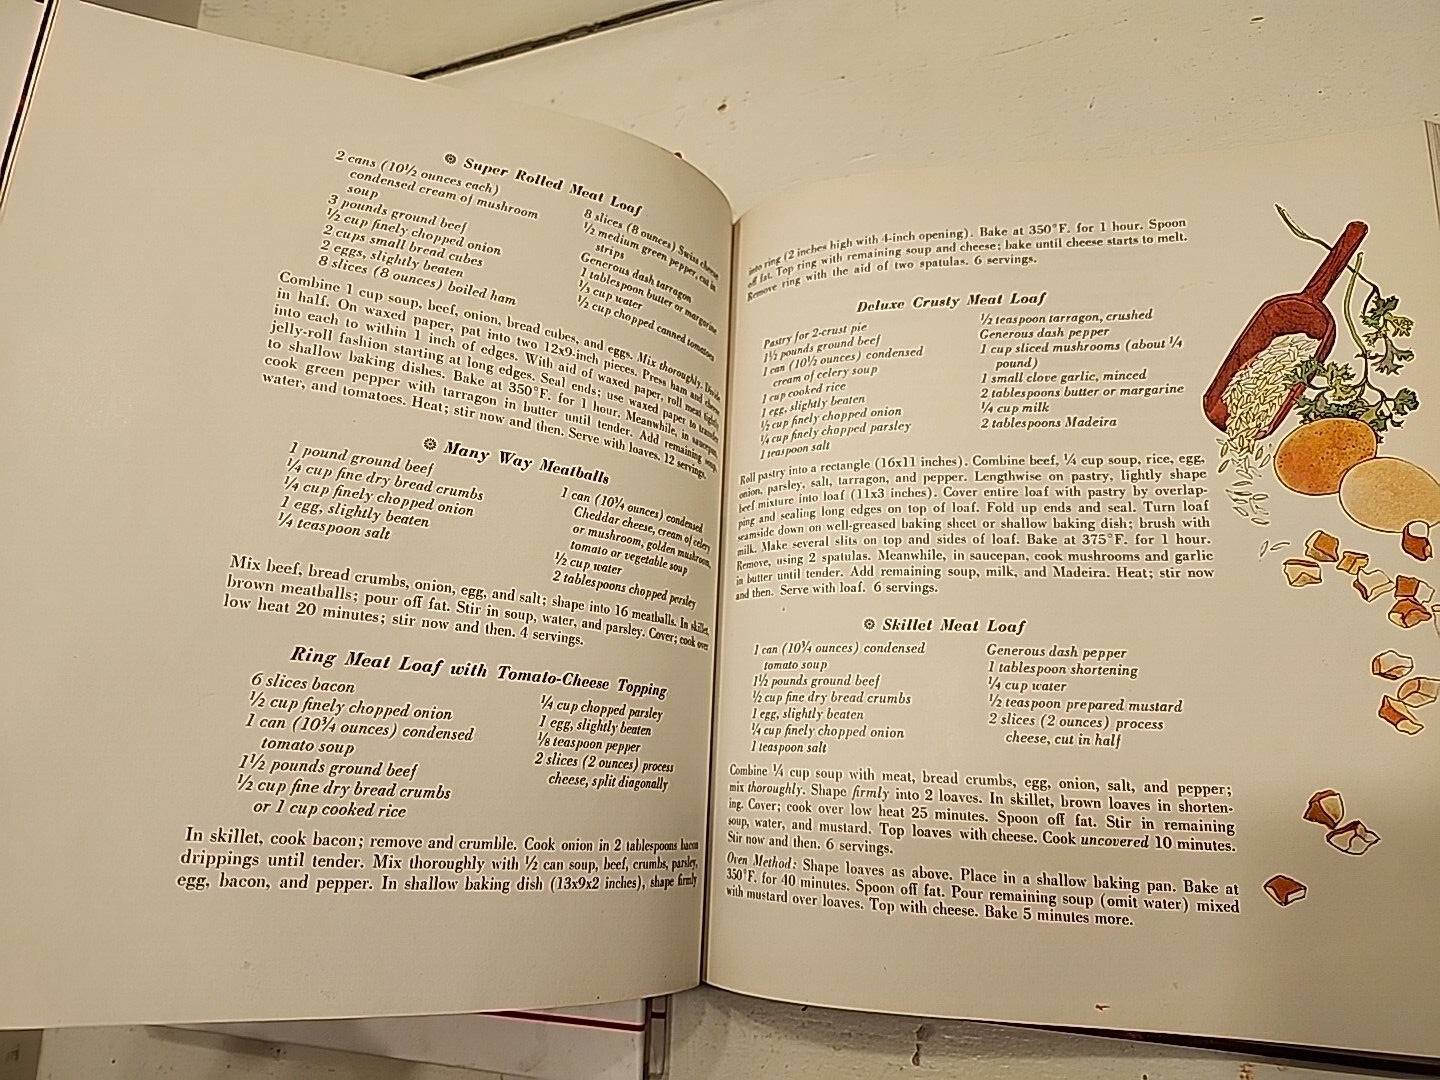 Super Rolled Meat Loaf
2 cans (10½ ounces each)
condensed cream of mushroom
soup
3 pounds ground beef
½ cup finely chopped onion
2 cups small bread cubes
2 eggs, slightly beaten
8 slices (8 ounces) boiled ham
8 slices (8 ounces) Swiss cheese
½ medium green pepper, cut in
strips
Generous dash tarragon
1 tablespoon butter or margarine
⅓ cup water
½ cup chopped canned tomatoes
Combine 1 cup soup, beef, onion, bread cubes, and eggs. Mix thoroughly. Divide
in half. On waxed paper, pat into two 12x9-inch pieces. Press ham and cheese
into each to within 1 inch of edges. With aid of waxed paper, roll meat tightly
jelly-roll fashion starting at long edges. Seal ends; use waxed paper to transfer
to shallow baking dishes. Bake at 350°F. for 1 hour. Meanwhile, in saucepan,
cook green pepper with tarragon in butter until tender. Add remaining soup,
water, and tomatoes. Heat; stir now and then. Serve with loaves. 12 servings.
Many Way Meatballs
1 pound ground beef
¼ cup fine dry bread crumbs
¼ cup finely chopped onion
1 egg, slightly beaten
¼ teaspoon salt
1 can (10¾ ounces) condensed
Cheddar cheese, cream of celery
or mushroom, golden mushroom,
tomato or vegetable soup
½ cup water
2 tablespoons chopped parsley
Mix beef, bread crumbs, onion, egg, and salt; shape into 16 meatballs. In skillet,
brown meatballs; pour off fat. Stir in soup, water, and parsley. Cover; cook over
low heat 20 minutes; stir now and then. 4 servings.
Ring Meat Loaf with Tomato-Cheese Topping
6 slices bacon
½ cup finely chopped onion
1 can (10¾ ounces) condensed
tomato soup
1½ pounds ground beef
½ cup fine dry bread crumbs
or 1 cup cooked rice
¼ cup chopped parsley
1 egg, slightly beaten
⅛ teaspoon pepper
2 slices (2 ounces) process
cheese, split diagonally
In skillet, cook bacon; remove and crumble. Cook onion in 2 tablespoons bacon
drippings until tender. Mix thoroughly with ½ can soup, beef, crumbs, parsley,
egg, bacon, and pepper. In shallow baking dish (13x9x2 inches), shape firmly
into ring (2 inches high with 4-inch opening). Bake at 350°F. for 1 hour. Spoon
off fat. Top ring with remaining soup and cheese; bake until cheese starts to melt.
Remove ring with the aid of two spatulas. 6 servings.
Deluxe Crusty Meat Loaf
Pastry for 2-crust pie
1½ pounds ground beef
1 can (10½ ounces) condensed
cream of celery soup
1 cup cooked rice
1 egg, slightly beaten
½ cup finely chopped onion
¼ cup finely chopped parsley
1 teaspoon salt
½ teaspoon tarragon, crushed
Generous dash pepper
1 cup sliced mushrooms (about ¼
pound)
1 small clove garlic, minced
2 tablespoons butter or margarine
¼ cup milk
2 tablespoons Madeira
Roll pastry into a rectangle (16x11 inches). Combine beef, ¼ cup soup, rice, egg,
onion, parsley, salt, tarragon, and pepper. Lengthwise on pastry, lightly shape
beef mixture into loaf (11x3 inches). Cover entire loaf with pastry by overlap-
ping and sealing long edges on top of loaf. Fold up ends and seal. Turn loaf
seamside down on well-greased baking sheet or shallow baking dish; brush with
milk. Make several slits on top and sides of loaf. Bake at 375°F. for 1 hour.
Remove, using 2 spatulas. Meanwhile, in saucepan, cook mushrooms and garlic
in butter until tender. Add remaining soup, milk, and Madeira. Heat; stir now
and then. Serve with loaf. 6 servings.
Skillet Meat Loaf
1 can (10¾ ounces) condensed
tomato soup
1½ pounds ground beef
½ cup fine dry bread crumbs
1 egg, slightly beaten
¼ cup finely chopped onion
1 teaspoon salt
Generous dash pepper
1 tablespoon shortening
¼ cup water
½ teaspoon prepared mustard
2 slices (2 ounces) process
cheese, cut in half
Combine ¼ cup soup with meat, bread crumbs, egg, onion, salt, and pepper;
mix thoroughly. Shape firmly into 2 loaves. In skillet, brown loaves in shorten-
ing. Cover; cook over low heat 25 minutes. Spoon off fat. Stir in remaining
soup, water, and mustard. Top loaves with cheese. Cook uncovered 10 minutes.
Stir now and then. 6 servings.
Oven Method: Shape loaves as above. Place in a shallow baking pan. Bake at
350°F. for 40 minutes. Spoon off fat. Pour remaining soup (omit water) mixed
with mustard over loaves. Top with cheese. Bake 5 minutes more.